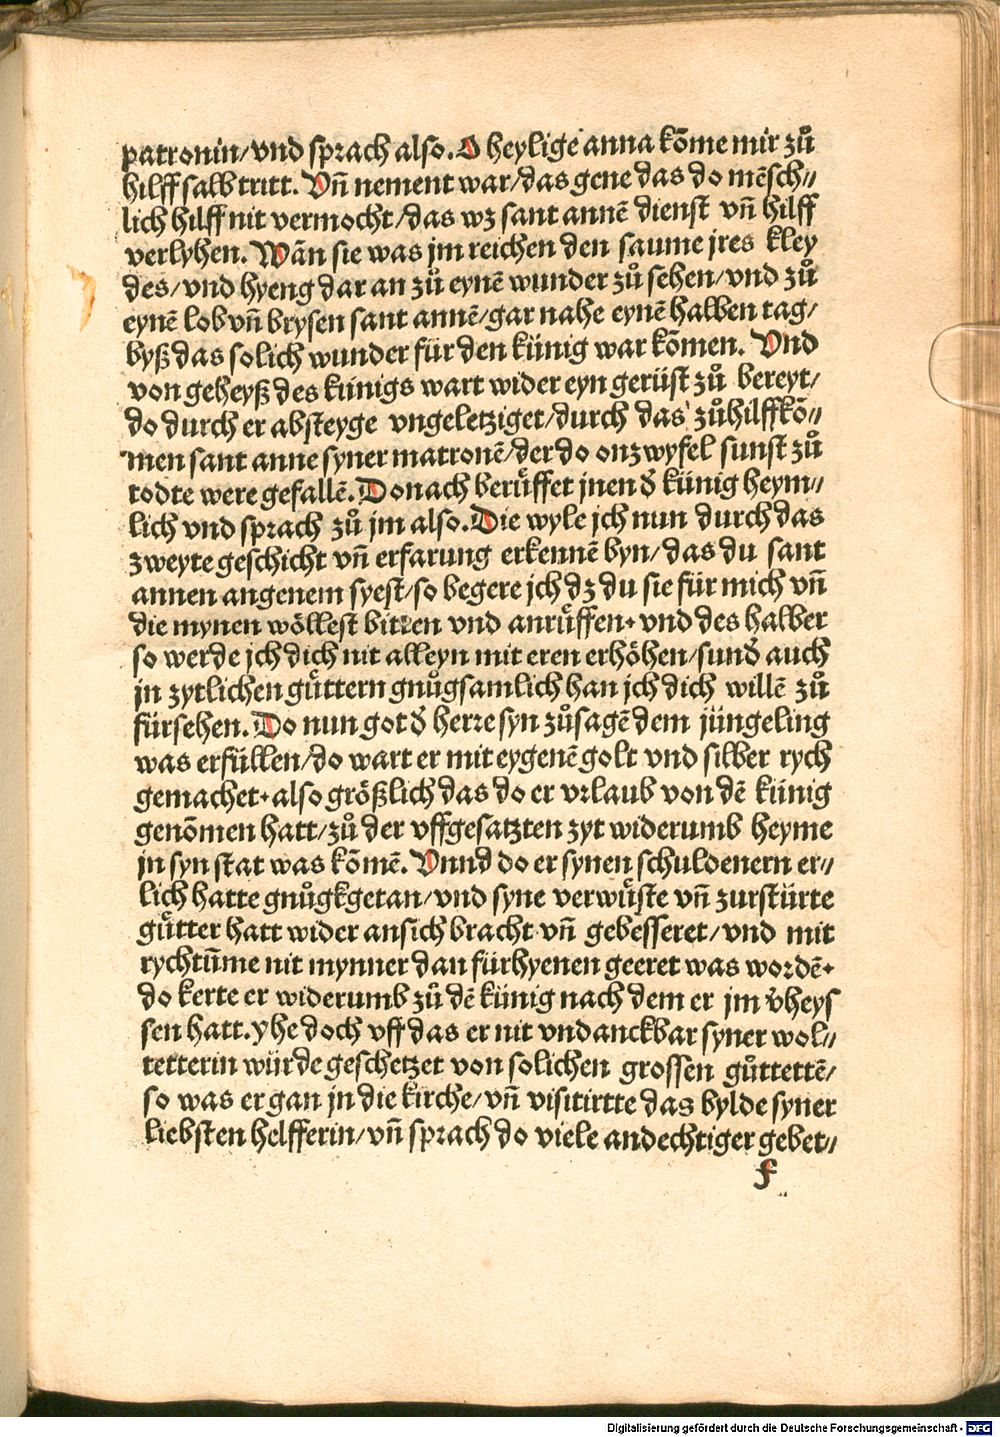 patronin/vnd sprach also. O heylige anna kōme mir zů
hilff salb tritt. Vn̄ nement war/das gene das do mēsch⸗
lich hilff nit vermocht/das wz sant annē dienst vn̄ hilff
verlyhen. Wān sie was jm reichen den saume jres kley
des/vnd hyeng dar an zů eynē wunder zů sehen/vnd zů
eynē lob vn̄ brysen sant annē/gar nahe eynē halben tag/
byß das solich wunder für den künig war kōmen. Vnd
von geheyß des künigs wart wider eyn gerüst zů bereyt/
do durch er absteyge vngeletziget/durch das zůhilffkō⸗
men sant anne syner matronē/der do onzwyfel sunst zů
todte were gefallē. Donach berůffet jnen d̄ künig heym⸗
lich vnd sprach zů jm also. Die wyle jch nun durch das
zweyte geschicht vn̄ erfarung erkennē byn/das du sant
annen angenem syest/so begere jch dz du sie für mich vn̄
die mynen wöllest bitten vnd anrůffen. vnd des halber
so werde jch dich nit alleyn mit eren erhöhen/sund̄ auch
jn zytlichen gůttern gnůgsamlich han jch dich willē zů
fürsehen. Do nun got d̄ herre syn zůsagē dem jüngeling
was erfüllen/do wart er mit eygenē golt vnd silber rych
gemachet. also größlich das do er vrlaub von dē künig
genōmen hatt/zů der vffgesatzten zyt widerumb heyme
jn syn stat was kōmē. Vnnd do er synen schuldenern er⸗
lich hatte gnůgkgetan/vnd syne verwůste vn̄ zurstürte
gůtter hatt wider ansich bracht vn̄ gebesseret/vnd mit
rychtūme nit mynner dan fürhyenen geeret was wordē.
do kerte er widerumb zů dē künig nach dem er jm v̄heys
sen hatt. yhe doch vff das er nit vndanckbar syner wol⸗
tetterin würde geschetzet von solichen grossen gůttettē/
so was er gan jn die kirche/vn̄ visitirtte das bylde syner
liebsten helfferin/vn̄ sprach do viele andechtiger gebet⸗
f
Digitalisierung gefördert durch die Deutsche Forschungsgemeinschaft - DFG